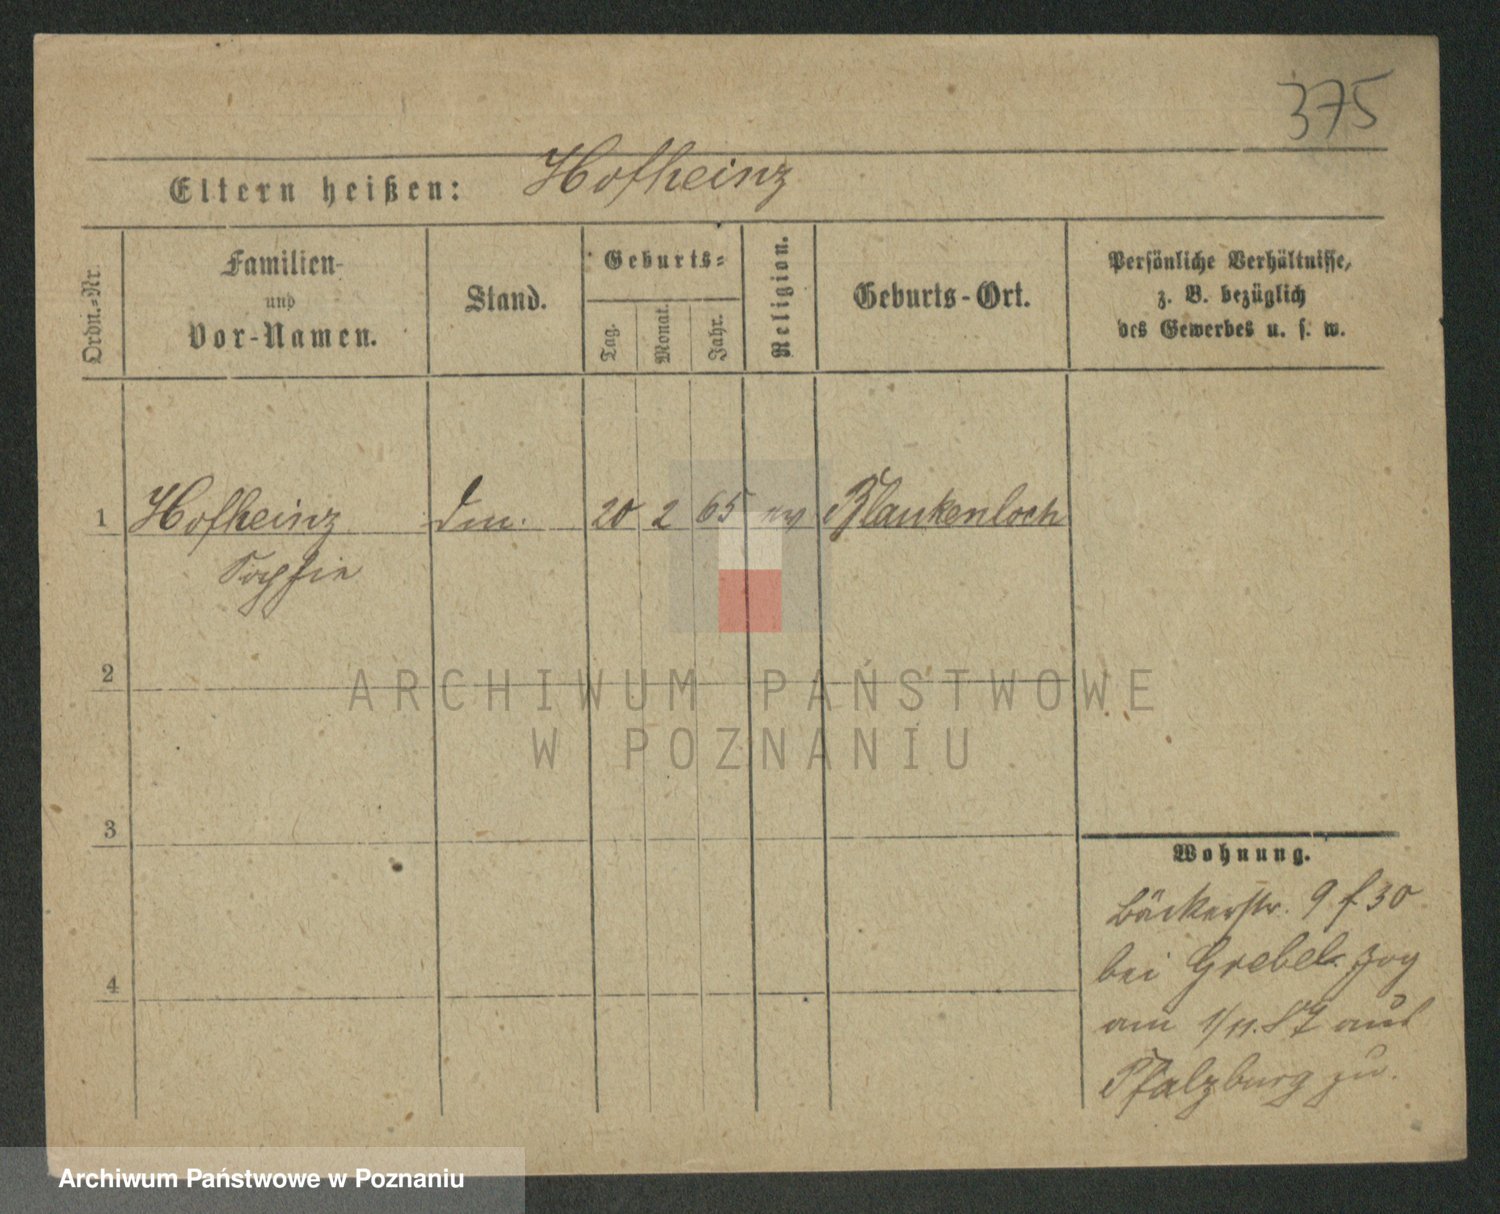 375
Eltern heißen: Hofheinz
Ordn.-Nr.
Familien-
und
Vor-Namen.
Stand.
Geburts-
Tag.
Monat.
Jahr.
Religion.
Geburts-Ort.
Persönliche Verhältnisse,
z. B. bezüglich
des Gewerbes u. s. w.
1 Hofheinz 20 2 65 ev Blankenloch
Sophie
2
3
4
Wohnung.
Bäckerstr. 9 f 30
bei Grebel zog
am 1/11.87 aus
Pfalzburg zu.
ARCHIWUM PAŃSTWOWE
W POZNANIU
Archiwum Państwowe w Poznaniu